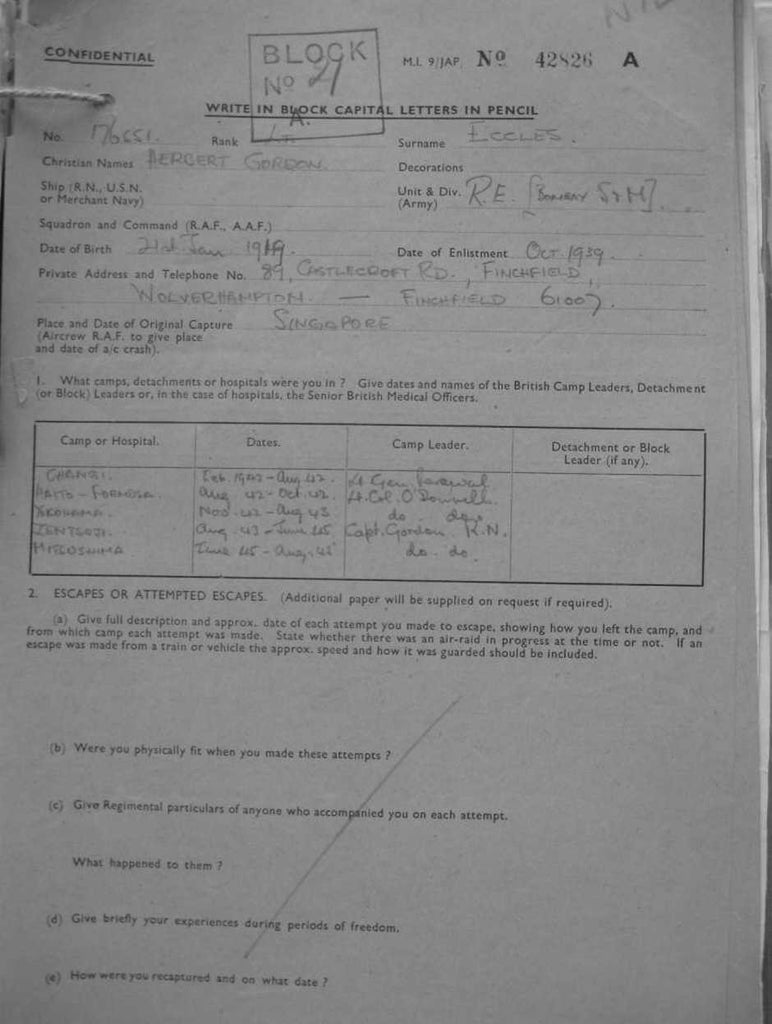 CONFIDENTIAL
BLOCK
No 4
A.
M.I. 9/JAP. No 42826 A
WRITE IN BLOCK CAPITAL LETTERS IN PENCIL
No. 176651. Rank Lt. Surname ECCLES.
Christian Names HERBERT GORDON. Decorations
Ship (R.N., U.S.N. or Merchant Navy)
Unit & Div. (Army) R.E. [BOMBAY S & M].
Squadron and Command (R.A.F., A.A.F.)
Date of Birth 21st Jan 1919. Date of Enlistment OCT. 1939.
Private Address and Telephone No. 89, CASTLECROFT RD., FINCHFIELD,
WOLVERHAMPTON. — FINCHFIELD 61007.
Place and Date of Original Capture SINGAPORE
(Aircrew R.A.F. to give place
and date of a/c crash).
1. What camps, detachments or hospitals were you in ? Give dates and names of the British Camp Leaders, Detachment
(or Block) Leaders or, in the case of hospitals, the Senior British Medical Officers.
Camp or Hospital. Dates. Camp Leader. Detachment or Block
Leader (if any).
CHANGI. Feb. 1942 - Aug 42. Lt Gen. Percival
HAITO - FORMOSA. Aug. 42 - Oct. 42. Lt. Col. O'Donnell.
YOKOHAMA. Nov. 42 - Aug 43 do do.
ZENTSUJI. Aug. 43 - June 45 Capt. Gordon R.N.
Jun 45 - Aug. 45 do. do.
2. ESCAPES OR ATTEMPTED ESCAPES. (Additional paper will be supplied on request if required).
(a) Give full description and approx. date of each attempt you made to escape, showing how you left the camp, and
from which camp each attempt was made. State whether there was an air-raid in progress at the time or not. If an
escape was made from a train or vehicle the approx. speed and how it was guarded should be included.
(b) Were you physically fit when you made these attempts ?
(c) Give Regimental particulars of anyone who accompanied you on each attempt.
What happened to them ?
(d) Give briefly your experiences during periods of freedom.
(e) How were you recaptured and on what date ?